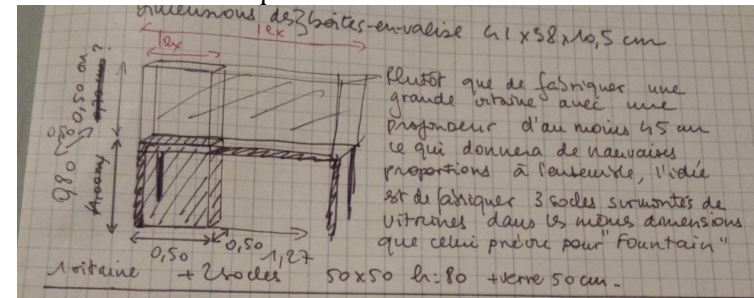 Dimensions des 3 boîtes-en-valise 41x38x10,5 cm
1ex
1ex
Plutôt que de fabriquer une
grande vitrine avec une
profondeur d'au moins 45 cm
ce qui donnera de mauvaises
proportions à l'ensemble, l'idée
est de fabriquer 3 socles surmontés de
vitrines dans les mêmes dimensions
que celui prévu pour "Fountain"
0,50 ou
?
0,80
0,50
0,50
1,27
1 vitrine + 2 socles 50x50 h: 80 + verre 50 cm.